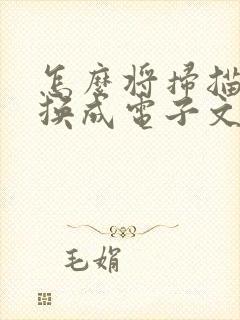 怎麼将掃描
换成電子文
毛娟